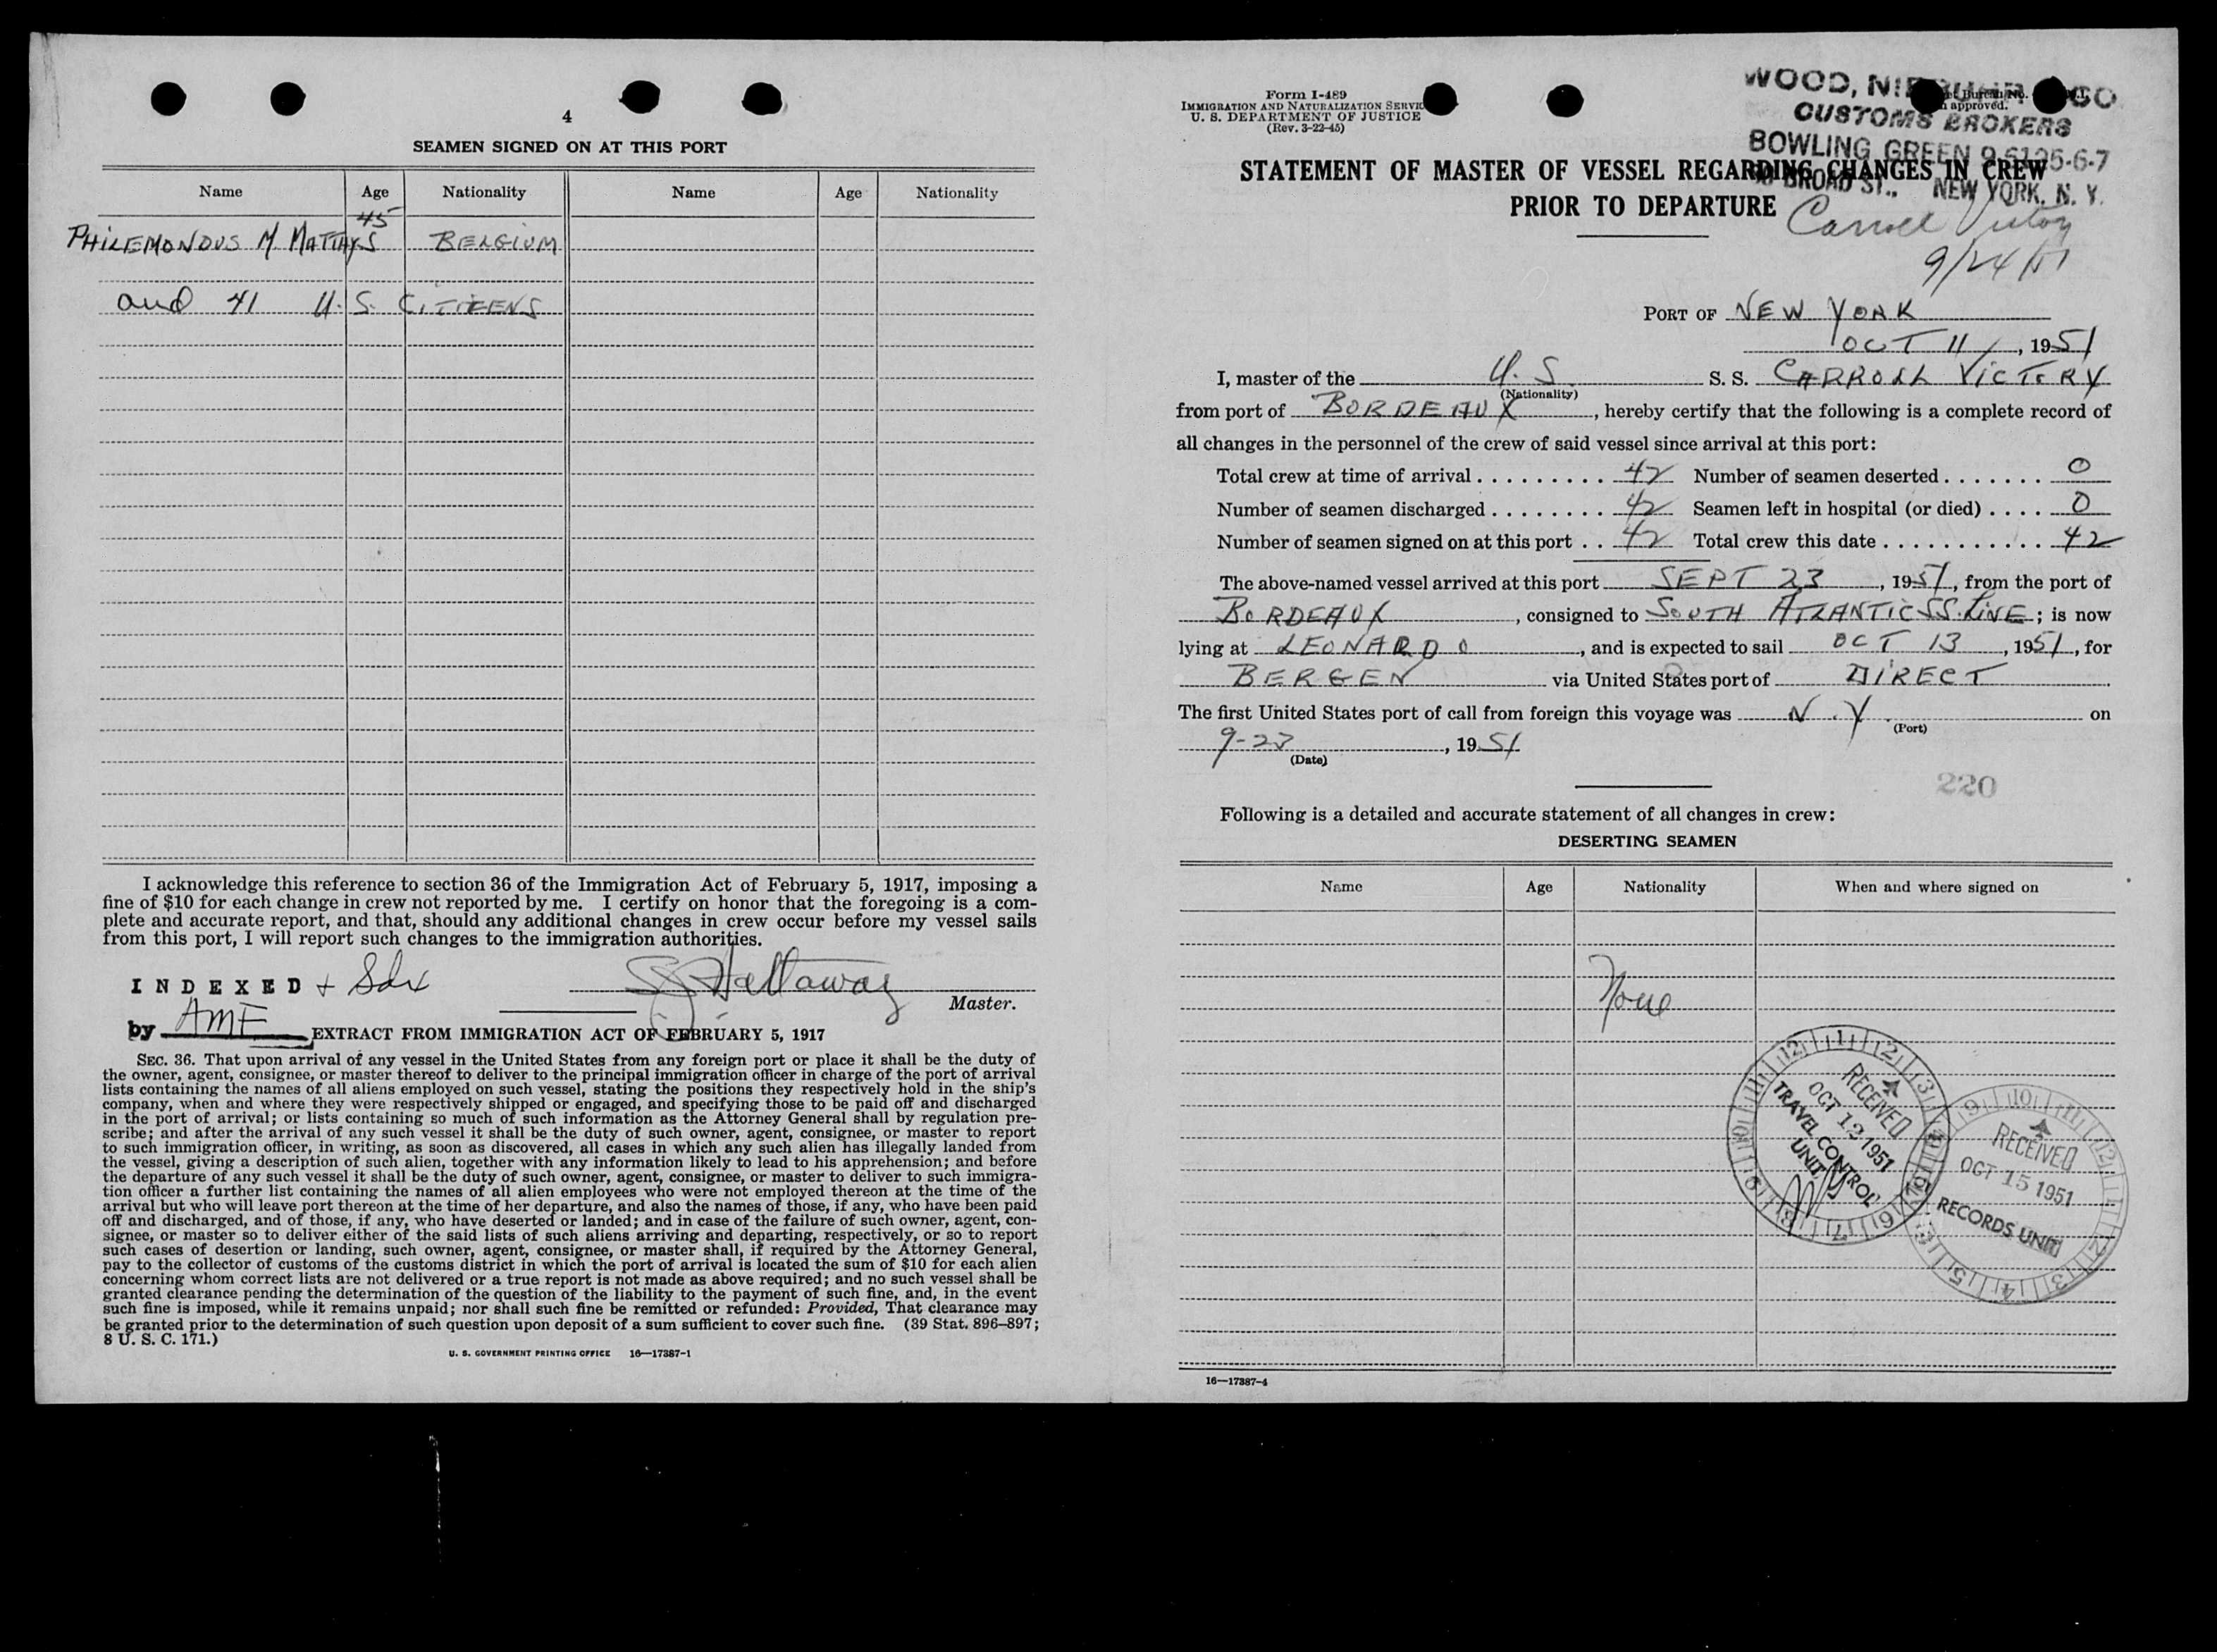 4
SEAMEN SIGNED ON AT THIS PORT
Name Age Nationality Name Age Nationality
PHILEMONDUS M MATTHYS 45 BELGIUM
and 41 U.S. CITIZENS
I acknowledge this reference to section 36 of the Immigration Act of February 5, 1917, imposing a
fine of $10 for each change in crew not reported by me. I certify on honor that the foregoing is a com-
plete and accurate report, and that, should any additional changes in crew occur before my vessel sails
from this port, I will report such changes to the immigration authorities.
INDEXED +
Hattaway
Master.
by AMF
EXTRACT FROM IMMIGRATION ACT OF FEBRUARY 5, 1917
SEC. 36. That upon arrival of any vessel in the United States from any foreign port or place it shall be the duty of
the owner, agent, consignee, or master thereof to deliver to the principal immigration officer in charge of the port of arrival
lists containing the names of all aliens employed on such vessel, stating the positions they respectively hold in the ship's
company, when and where they were respectively shipped or engaged, and specifying those to be paid off and discharged
in the port of arrival; or lists containing so much of such information as the Attorney General shall by regulation pre-
scribe; and after the arrival of any such vessel it shall be the duty of such owner, agent, consignee, or master to report
to such immigration officer, in writing, as soon as discovered, all cases in which any such alien has illegally landed from
the vessel, giving a description of such alien, together with any information likely to lead to his apprehension; and before
the departure of any such vessel it shall be the duty of such owner, agent, consignee, or master to deliver to such immigra-
tion officer a further list containing the names of all alien employees who were not employed thereon at the time of the
arrival but who will leave port thereon at the time of her departure, and also the names of those, if any, who have been paid
off and discharged, and of those, if any, who have deserted or landed; and in case of the failure of such owner, agent, con-
signee, or master so to deliver either of the said lists of such aliens arriving and departing, respectively, or so to report
such cases of desertion or landing, such owner, agent, consignee, or master shall, if required by the Attorney General,
pay to the collector of customs of the customs district in which the port of arrival is located the sum of $10 for each alien
concerning whom correct lists are not delivered or a true report is not made as above required; and no such vessel shall be
granted clearance pending the determination of the question of the liability to the payment of such fine, and, in the event
such fine is imposed, while it remains unpaid; nor shall such fine be remitted or refunded: Provided, That clearance may
be granted prior to the determination of such question upon deposit of a sum sufficient to cover such fine. (39 Stat. 896–897;
8 U. S. C. 171.)
U. S. GOVERNMENT PRINTING OFFICE 16—17387-1
Form I-489
IMMIGRATION AND NATURALIZATION
U. S. DEPARTMENT OF JUSTICE
(Rev. 3-22-45)
approved.
WOOD,
CUSTOMS BROKERS
BOWLING GREEN 9-6125-6-7
BROAD ST., NEW YORK, N. Y.
STATEMENT OF MASTER OF VESSEL REGARDING CHANGES IN CREW
PRIOR TO DEPARTURE
Carroll Victory
9/24/51
PORT OF NEW YORK
OCT 11, 1951
I, master of the U. S. S. S. CARROLL VICTORY
(Nationality)
from port of BORDEAUX, hereby certify that the following is a complete record of
all changes in the personnel of the crew of said vessel since arrival at this port:
Total crew at time of arrival . . . . . . . . . 42 Number of seamen deserted . . . . . . . 0
Number of seamen discharged . . . . . . . . 42 Seamen left in hospital (or died) . . . . 0
Number of seamen signed on at this port . . 42 Total crew this date . . . . . . . . . . . 42
The above-named vessel arrived at this port SEPT 23, 1951, from the port of
BORDEAUX, consigned to SOUTH ATLANTIC SS. LINE; is now
lying at LEONARDO, and is expected to sail OCT 13, 1951, for
BERGEN via United States port of DIRECT
The first United States port of call from foreign this voyage was N.Y. on
(Port)
9-23, 1951
(Date)
220
Following is a detailed and accurate statement of all changes in crew:
DESERTING SEAMEN
Name Age Nationality When and where signed on
None
RECEIVED
OCT 12 1951
TRAVEL CONTROL
UNIT
RECEIVED
OCT 15 1951
RECORDS UNIT
16—17387-4